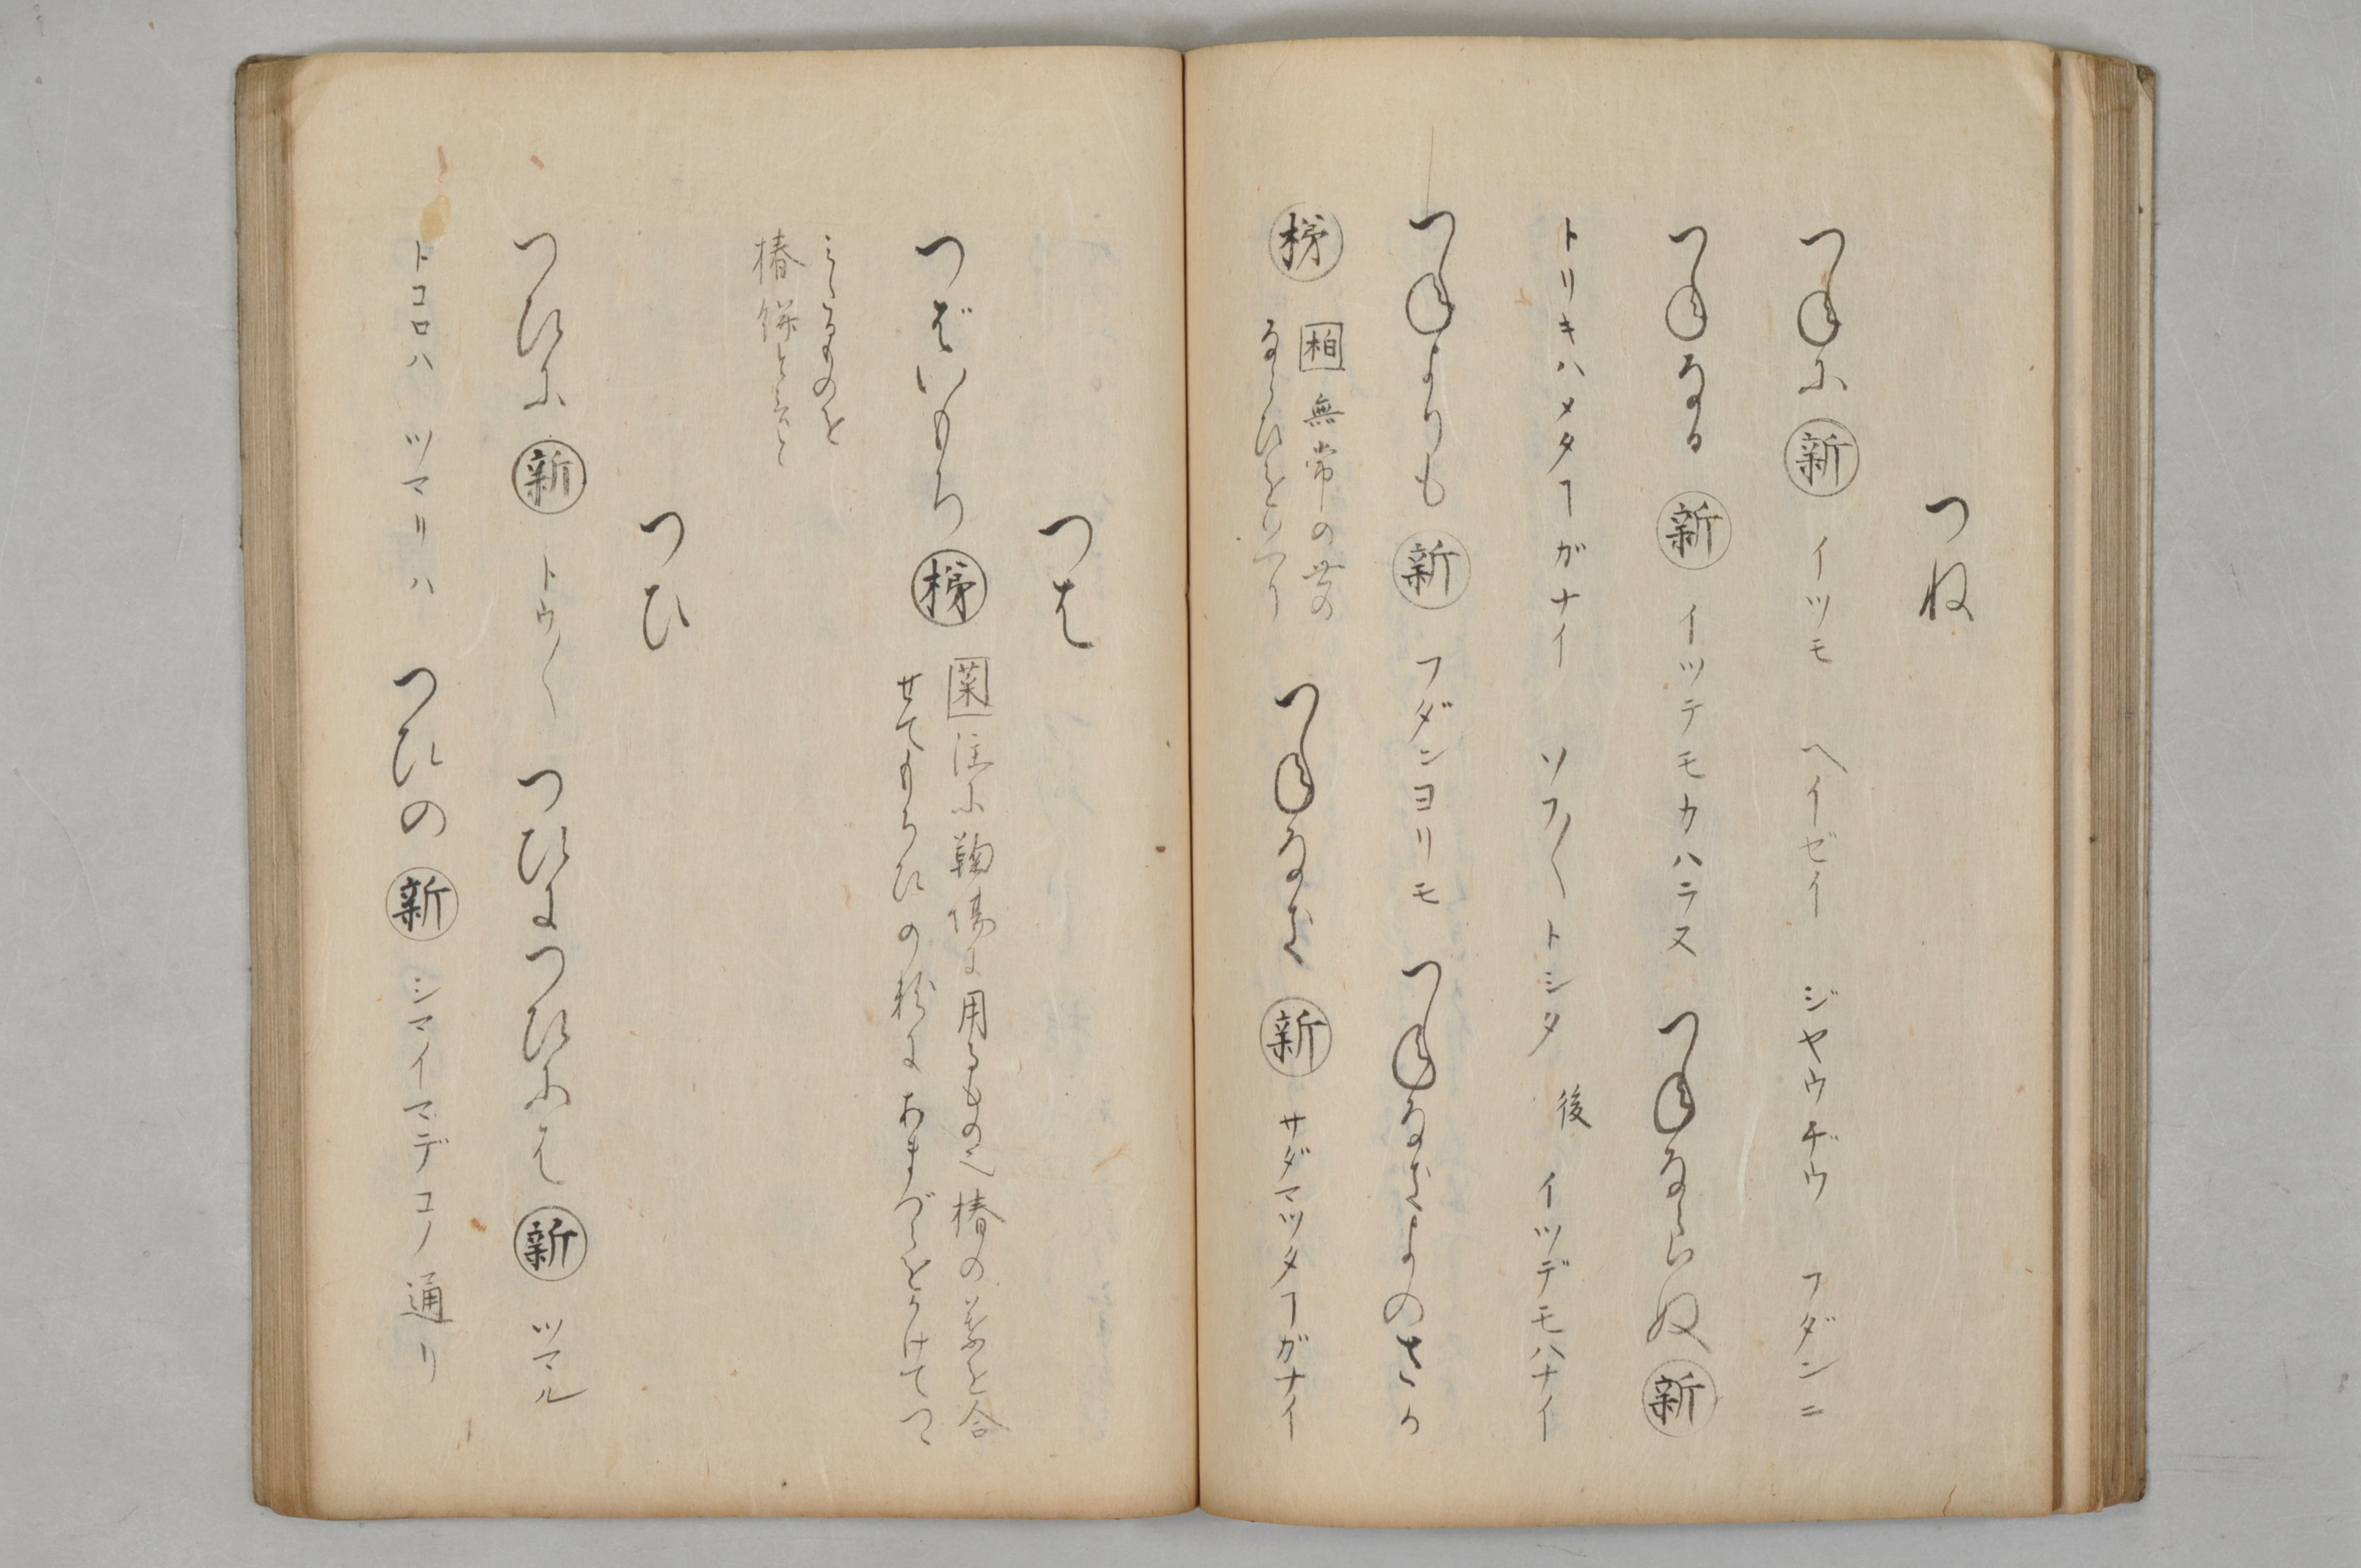 つね
つねに 新 イツモ ヘイゼイ ジヤウヂウ フダンニ
つねなる 新 イツデモカハラヌ つねならぬ 新
トリキハメタヿガナイ ソフ〳〵トシタ 後 イツデモハナイ
つねよりも 新 フダンヨリモ つねなきよのさか
梯 栢 無常の世の
ならひをいへり つねなき 新 サダマツタヿガナイ
つは
つばいもち 梯 葉 注に鞠場に用るもの也椿の葉を合
せてもちひの粉にあまづらをかけてつ
ミたるものを
椿餅と云々
つひ
つひに 新 トウ〳〵 つひにつひには 新 ツマル
トコロハ ツマリハ つひの 新 シマイマデコノ通リ